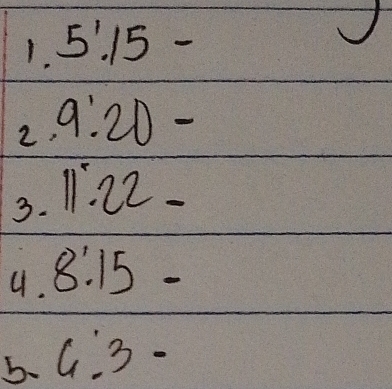 1. 5:15 -
2. 9:20 -
3. 11:22 -
4. 8:15 -
5. 4:3 -